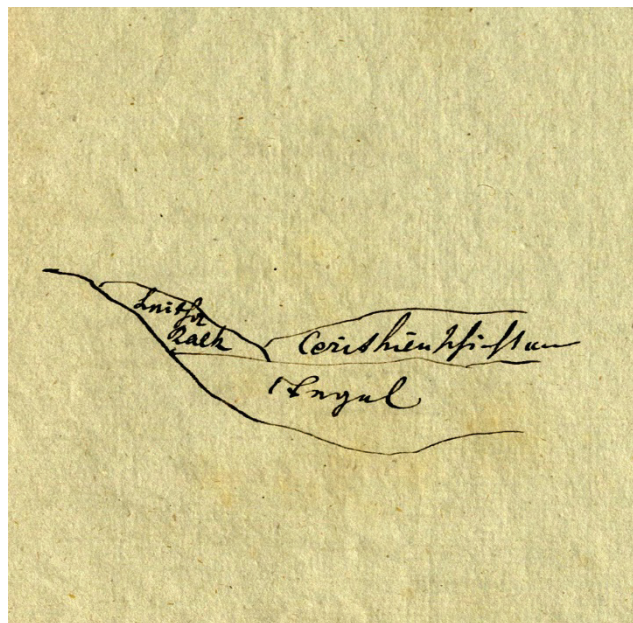 Leitha
Kalk
Cerithien Schichten
Tegel